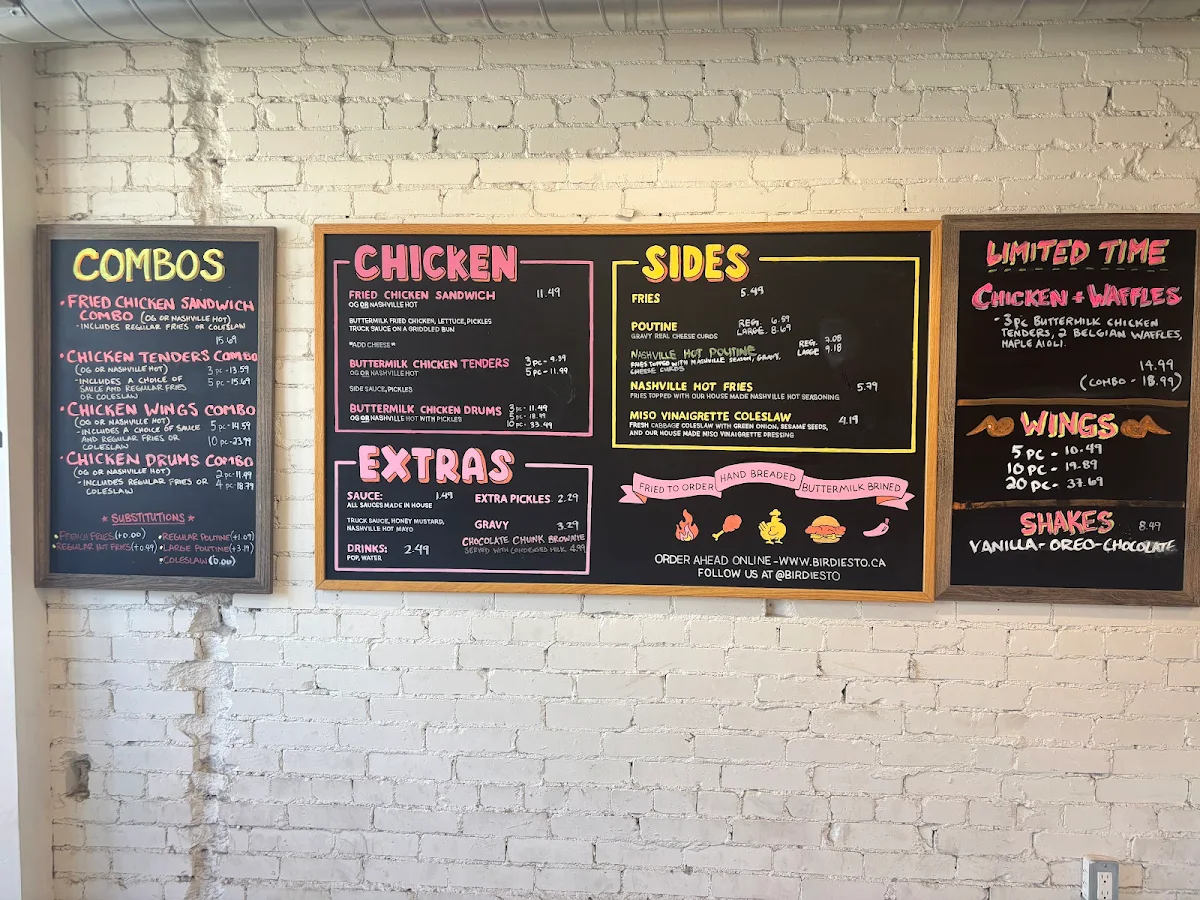 COMBOS
• FRIED CHICKEN SANDWICH
COMBO (OG OR NASHVILLE HOT)
- INCLUDES REGULAR FRIES OR COLESLAW
15.69
• CHICKEN TENDERS COMBO
(OG OR NASHVILLE HOT) 3 pc - 13.59
- INCLUDES A CHOICE OF 5 pc - 15.69
SAUCE AND REGULAR FRIES
OR COLESLAW
• CHICKEN WINGS COMBO
(OG OR NASHVILLE HOT) 5 pc - 14.59
- INCLUDES A CHOICE OF SAUCE
AND REGULAR FRIES OR 10 pc - 23.99
COLESLAW
• CHICKEN DRUMS COMBO
(OG OR NASHVILLE HOT) 2 pc - 11.99
- INCLUDES REGULAR FRIES OR 4 pc - 18.79
COLESLAW
★ SUBSTITUTIONS ★
• FRENCH FRIES (+0.00) • REGULAR POUTINE (+1.09)
• REGULAR HOT FRIES (+0.99) • LARGE POUTINE (+3.19)
• COLESLAW (0.00)
CHICKEN
FRIED CHICKEN SANDWICH 11.49
OG OR NASHVILLE HOT
BUTTERMILK FRIED CHICKEN, LETTUCE, PICKLES
TRUCK SAUCE ON A GRIDDLED BUN
*ADD CHEESE*
BUTTERMILK CHICKEN TENDERS 3 pc - 9.39
OG OR NASHVILLE HOT 5 pc - 11.99
SIDE SAUCE, PICKLES
BUTTERMILK CHICKEN DRUMS 3 pc - 11.49
OG OR NASHVILLE HOT WITH PICKLES 5 pc - 18.99
10 pc - 33.49
EXTRAS
SAUCE: 1.49
ALL SAUCES MADE IN HOUSE
TRUCK SAUCE, HONEY MUSTARD,
NASHVILLE HOT MAYO
DRINKS: 2.49
POP, WATER
EXTRA PICKLES 2.29
GRAVY 3.29
CHOCOLATE CHUNK BROWNIE
SERVED WITH CONDENSED MILK 4.99
SIDES
FRIES 5.49
POUTINE REG. 6.59
GRAVY REAL CHEESE CURDS LARGE. 8.69
NASHVILLE HOT POUTINE REG. 7.05
FRIES TOPPED WITH NASHVILLE SEASON, GRAVY, LARGE 9.18
CHEESE CURDS
NASHVILLE HOT FRIES 5.79
FRIES TOPPED WITH OUR HOUSE MADE NASHVILLE HOT SEASONING
MISO VINAIGRETTE COLESLAW 4.19
FRESH CABBAGE COLESLAW WITH GREEN ONION, SESAME SEEDS,
AND OUR HOUSE MADE MISO VINAIGRETTE DRESSING
FRIED TO ORDER HAND BREADED BUTTERMILK BRINED
ORDER AHEAD ONLINE - WWW.BIRDIESTO.CA
FOLLOW US AT @BIRDIESTO
LIMITED TIME
CHICKEN + WAFFLES
• 3pc BUTTERMILK CHICKEN
TENDERS, 2 BELGIAN WAFFLES,
MAPLE AIOLI.
14.99
(COMBO - 18.99)
WINGS
5 PC - 10.49
10 PC - 19.89
20 PC - 37.69
SHAKES 8.49
VANILLA - OREO - CHOCOLATE